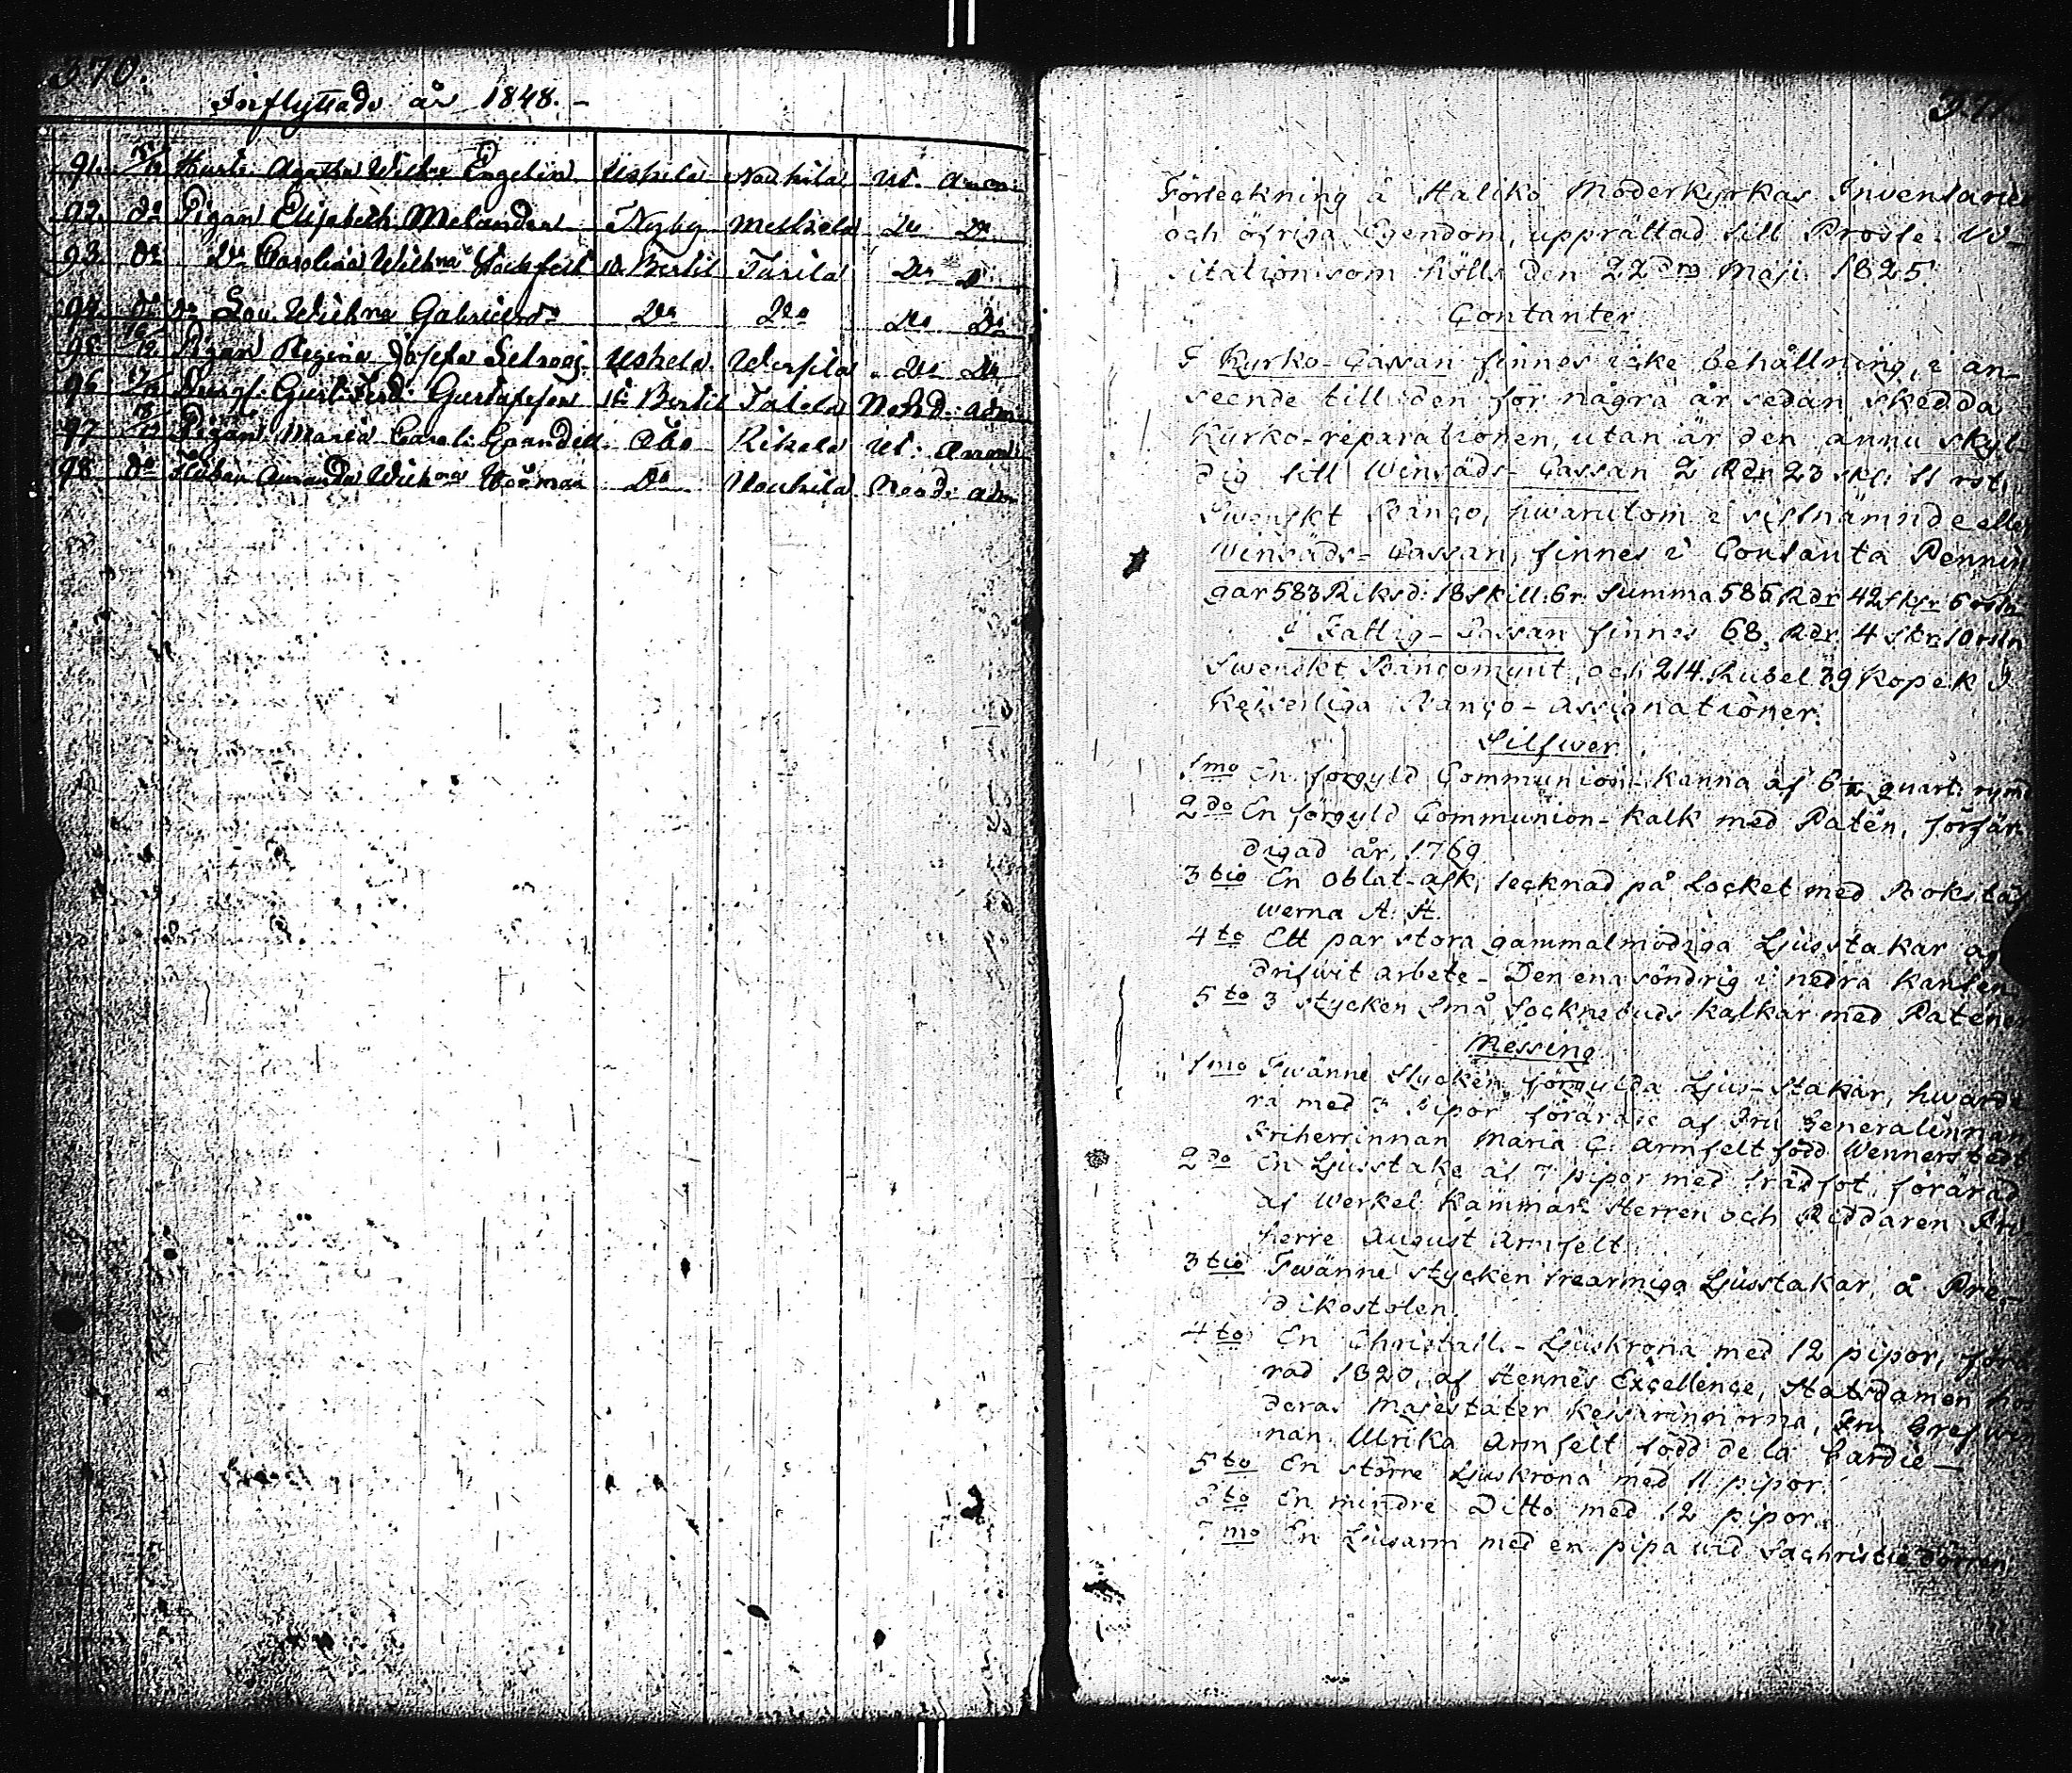 370.
Inflyttade år 1848.-
91. Hust: Agatha Wilhna Engelin Uskela Naukila Ut. Ann:
92. do Pigan Elisabeth Melander Nyby Do Do
93. do Do Carolina Wilhna St Bertil Do Do
94. do do Lov. Wilhna Gabrielsdr Do Do Do Do
95. Pigan Regina Josefa Uskela Do Do
96. Gust: Ferd: Gustafsson St Bertil adm:
97. Pigan Maria Carol: Grandell Åbo Rikala Ut: Ann:
98 do Amanda Wilhna Do Naukila adm
371.
Förteckning å Haliko Moderkyrkas Inventarie
och öfriga Egendom, upprättad till Prosle: Vi-
sitation som hölls den 22dra Maji 1825.
Contanter
I Kyrko-Cassan finnes icke behållning, i an-
seende till den för några år sedan skedda
Kyrko-reparationen, utan är den annu skyl-
dig till Winsäds-Cassan 2 Rdr 23 skl: 11 rst.
Swenskt Banco, hwarutom i sistnämnde eller
Winsäds-Cassan, finnes i Contanta Pennin
gar 583 Riksd: 18 Skill: 6 r. Summa 585 Rdr 42 skr 5 rstn
I Fattig-Cassan finnes 68 Rdr 4 skr 10 rstn
Swenskt Bancomynt, och 214 Rubel 39 Kopek i
Kejserliga Banco-Assignationer.
Silfwer
1mo En förgyld Communion-kanna af 6 quart: rymd
2do En förgyld Communion-kalk med Patén, förfär
digad år 1769
3tio En Oblat-ask, tecknad på Locket med Bokstäf
werna A: H.
4to Ett par stora gammalmodiga Ljusstakar af
drifwit arbete - Den ena söndrig i nedra kanten
5to 3 stycken små Socknebuds kalkar med Patener
Messing
1mo Twänne Stycken förgylda Ljus-stakar, hwarde
ra med 3 Pipor förärade af Fru Generalinnan
Friherrinnan Maria C: Armfelt född Wennerstedt
2do En Ljusstake af 7 pipor med trädfot, förärad
af Werkel: Kammar Herren och Riddaren Fri-
herre August Armfelt.
3tio Twänne stycken trearmiga Ljusstakar, å Pre-
dikostolen.
4to En Christall-Ljuskrona med 12 pipor, förä
rad 1820, af Hennes Excellence, Statsdamen hos
deras Majestäter Kejsarinnorna, Fru Grefwin
nan Ulrika Armfelt född de la Gardie-
5to En större Ljuskrona med 11 pipor.
6to En mindre Ditto med 12 pipor.
7mo En Ljusarm med en pipa wid Sachristiedörren